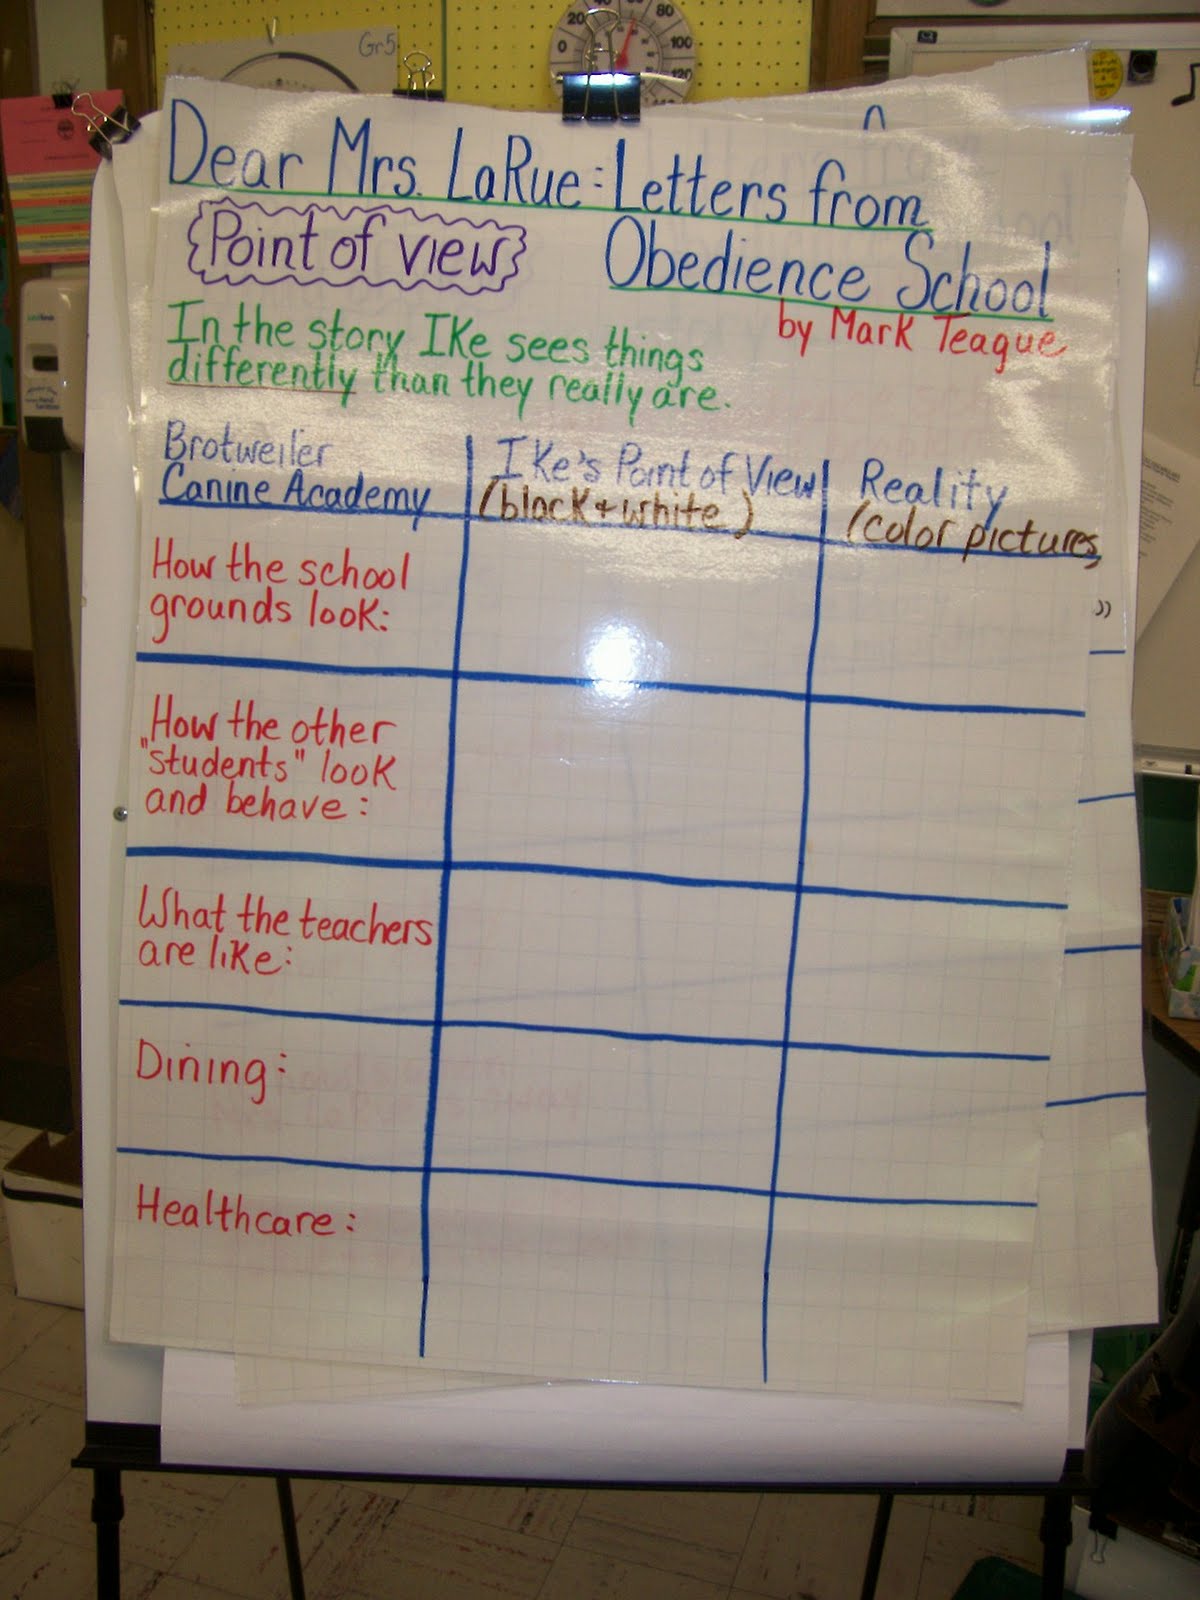 Gr5
20
80
0
100
120
Dear Mrs. LaRue: Letters from
Obedience School
Point of view
by Mark Teague
In the story Ike sees things
differently than they really are.
Brotweiler
Canine Academy
Ike's Point of View
(black + white)
Reality
(color pictures)
How the school
grounds look:
How the other
"students" look
and behave:
What the teachers
are like:
Dining:
Healthcare: